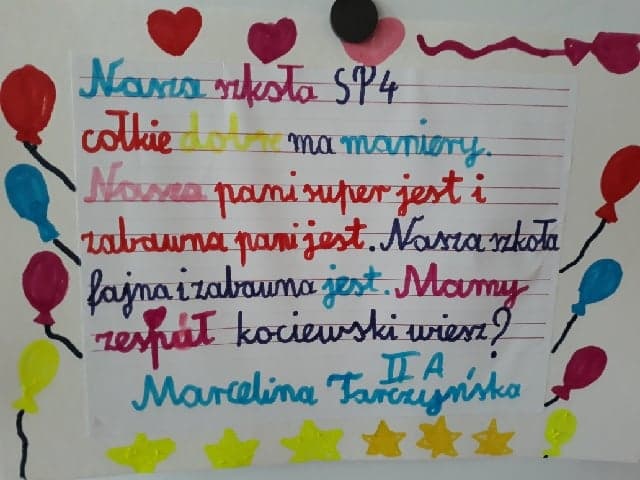 Nasza szkoła SP4
cołkie dobre ma maniery.
Nasza pani super jest i
zabawna pani jest. Nasza szkoła
fajna i zabawna jest. Mamy
zespół kociewski wiesz?
II A
Marcelina Tarczyńska